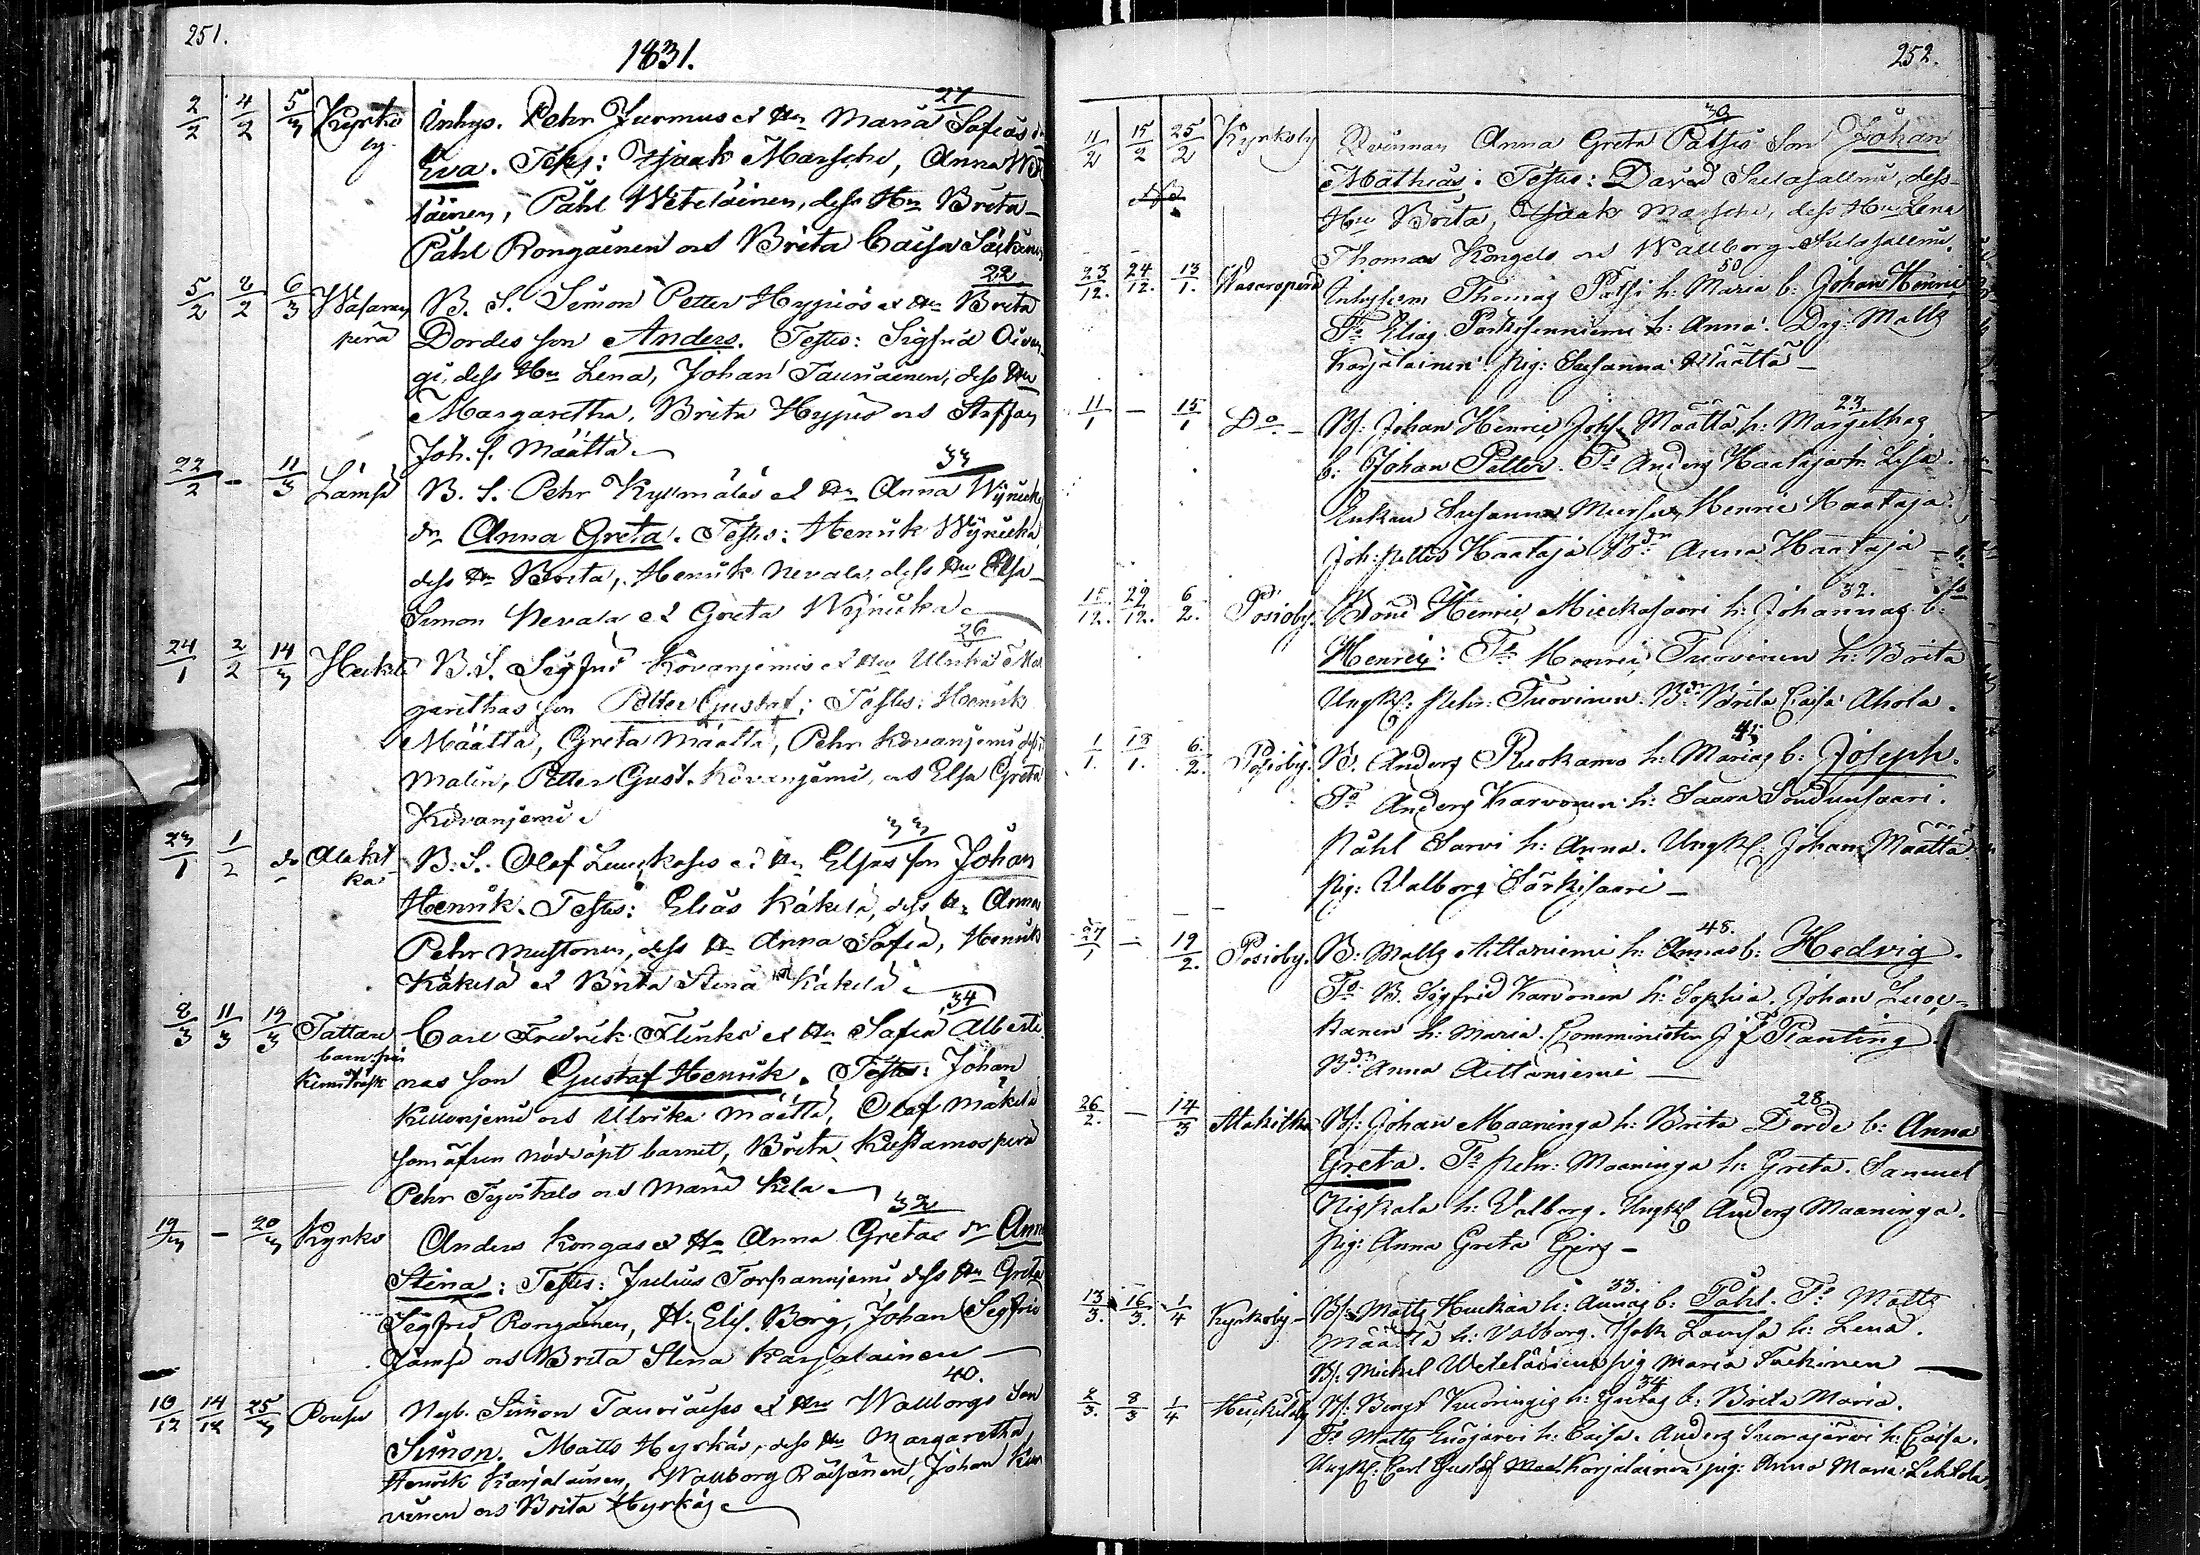 251.
1831.
27
2/2 4/2 5/3 Kyrko Inhys. Pehr Jurmus et Hu Maria Sofias dr
by. Eva. Test: Isaak Marsche, Anna Wete
läinen, Påhl Weteläinen, dess Hu Brita
Påhl Rongainen och Brita Caisa Säkkinen
22
5/2 8/2 6/3 Wasaran B. S. Simon Petter Hyypiös et Hu Brita
perä Dordes son Anders. Testes: Sigfrid Oivan
gi, dess Hu Lena, Johan Tauriainen, dess Hu
Margaretha, Brita Hyypiö och Staffan
Joh. s. Määttä
33
22/2 - 11/3 Lämsä B. S. Pehr Kyrmäläs et Hu Anna
dr Anna Greta. Testes: Henrik
dess Hu Brita, Henrik Nevala, dess Hu Elsa
Simon Nevala et Greta
26
24/1 2/2 14/3 B. S. Sigfrid Kovanjemis et Hu Ulrika Mar
garethas son Petter Gustaf; Testes: Henrik
Määttä, Greta Määttä, Pehr Kovanjemi, dess
Malin, Petter Gust. Kovanjemi, och Elsa Greta
Kovanjemi
33
23/1 1/2 do Alakit B. S. Olof et Hu Elsas son Johan
ka Henrik. Testes: Elias Käkelä, dess Hu Anna
Pehr Mustonen, dess Hu Anna Sofia, Henrik
Käkelä et Brita Stina Käkelä
34
8/3 11/3 19/3 Tattare Carl Fredrik Flinks et Hu Safia Alberti
barn från nas son Gustaf Henrik. Testes: Johan
Kemiträsk och Ulrika Määttä, Olof Mäkelä
som äfven nöddöpt barnet, Brita
Pehr och Maria Kela
32
19/3 - 20/3 Kyrko Anders Kongas et Hu Anna Gretas dr Anna
Stina: Testes: Julius Torpannjemi dess Hu Greta
Sigfrid Rongainen, H. Elis. Berg, Johan Sigfrid
Jämsä och Brita Stina Karjalainen
40.
10/12 14/12 25/3 Nyb. Simon Tauriaises et Hu Wallborgs son
Simon. Matts Hyrkäs, dess Hu Margaretha,
Henrik Karjalainen, Wallborg Räisänen, Johan
vinen och Brita Hyrkäs
252.
30
11/2 15/2 25/2 Kyrkoby Qvinnan Anna Greta Patsis Son Johan
Mathias. Testes: David Sulasallmi, dess
Hu Brita, Isaak Marsche, dess Hu Lena
Thomas Kongels och Wallborg Sulasallmi.
50
23/12. 24/12. 13/1. Wasaraperä Inhysem Thomas Patsi h: Maria b: Johan Henric
Ts Elias Parkisenniemi h: Anna. Drg: Matts
Karjalainen Pig: Susanna Määttä
23
11/1 - 15/1 Do Bs: Johan Henric Johss. Määttä h: Margethas
b: Johan Petter. Ts Anders Haataja h: Lisa.
Enkan Susanna Mursu, Henric Haataja.
Joh: Petter Haataja Bdr: Anna Haataja
32.
15/12. 29/12. 6/2. Posioby. Bond Henric Mieckasaari h: Johannas b:
Henric: Ts Henric Tuovinen h: Brita
Ungkl: Pehr: Tuovinen. Bdr Brita Caisa Ahola.
45
1/1. 13/1. 6/2. Posioby. B. Anders Ruokamo h: Marias b: Joseph.
Ts Anders Karvonen h: Saara
Påhl Sarvi h: Anna. Ungkl: Johan Määttä.
Pig: Valborg Särkisaari
48.
27/1 - 19/2. Posioby. B: Matts Aittaniemi h: Annas b: Hedvig.
Ts B. Sigfrid Karvonen h: Sophia. Johan Luo
kanen h: Maria. Comministern J F Planting.
Bdr Anna Aittaniemi
28.
26/2. - 14/3 Alakitka Bs: Johan Maaninga h: Brita Dorde b: Anna
Greta. Ts Pehr: Maaninga h: Greta. Samuel
Niskala h: Valborg. Ungkl Anders Maaninga.
Pig: Anna Greta
33.
13/3. 16/3. 1/4 Kyrkoby. Bs: Matts h: Annas b: Påhl. Ts Matts
Määttä h: Valborg. Isak Lämsä h: Lena.
Bs: Michel Weteläinen pig Maria
34
2/3. 8/3 1/4 Bs: Bengt Kuoringis h: Gretas b: Brita Maria.
Ts Matts h: Caisa. Anders h: Caisa.
Ungkl: Carl Gustaf Karjalainen pig: Anna Maria Lehtola